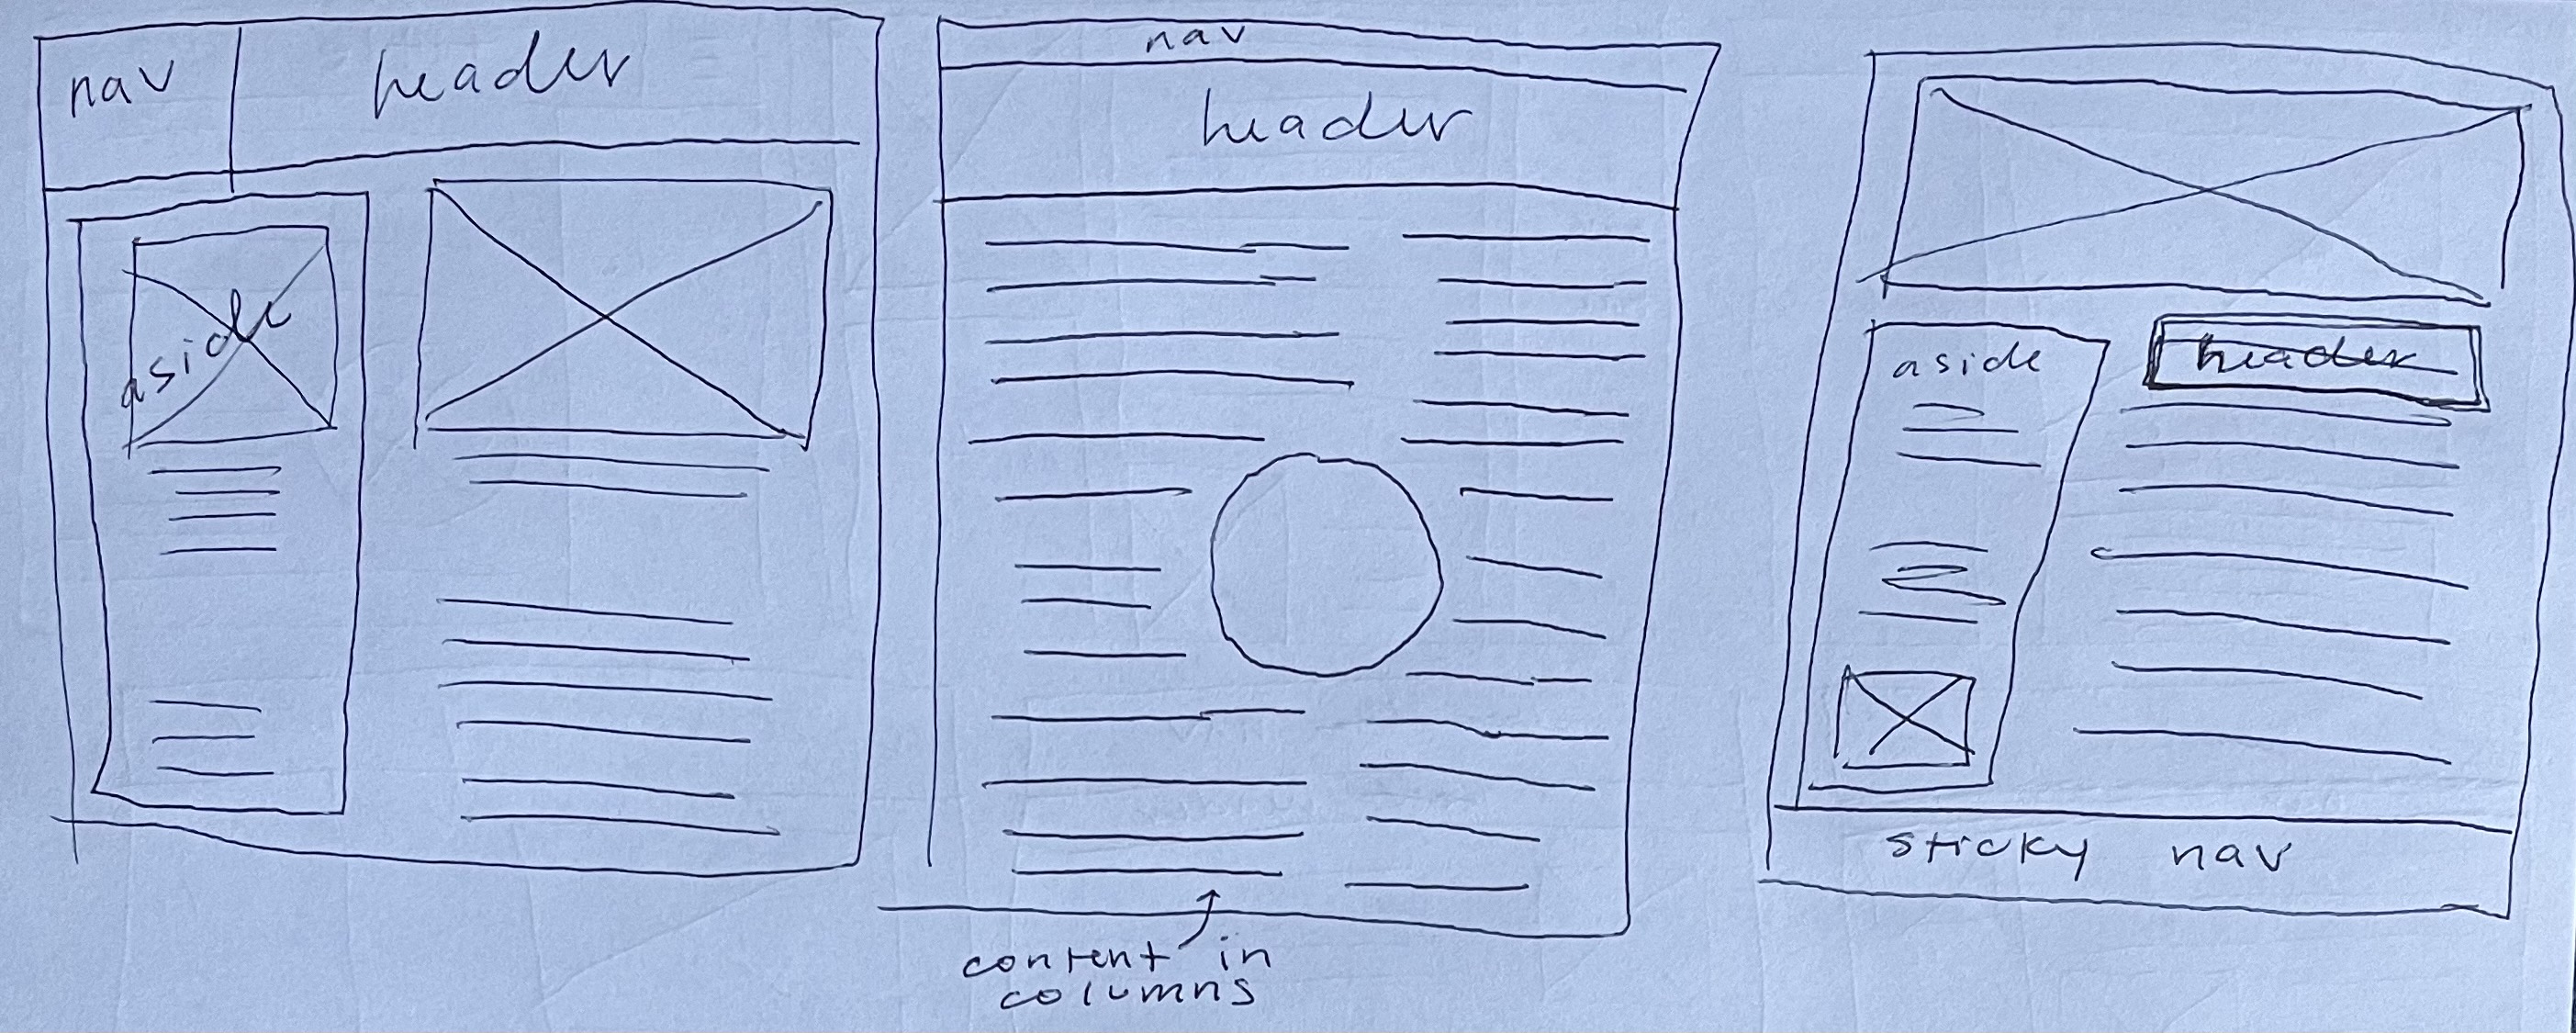 nav
header
aside
nav
header
content in
columns
aside
header
sticky nav